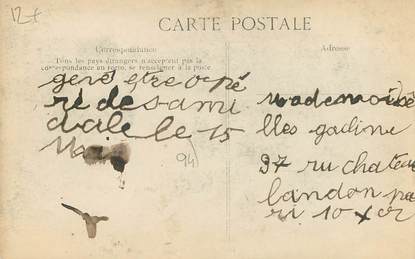 12+
CARTE POSTALE
Correspondance
Tous les pays étrangers n'acceptent pas la
correspondance au recto, se renseigner à la poste
Adresse
geré etre opé
ré de samі
dale le 15
Mai
94)
Mademoisé
lles gadine
97 ru chateau
landon pa
ri 10 x er